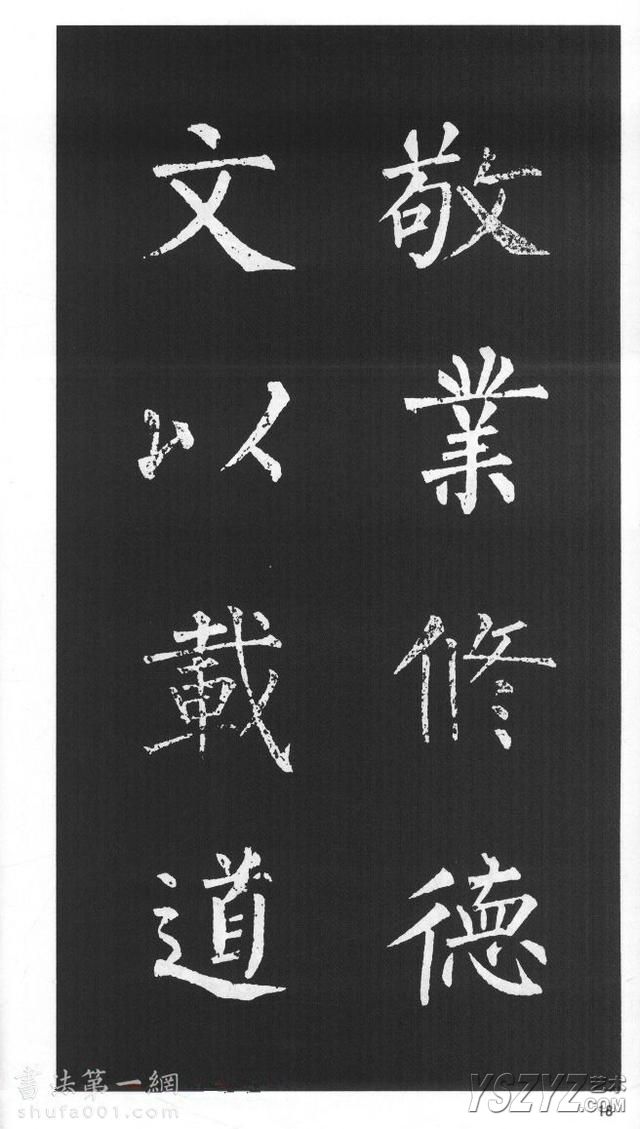 敬業修德
文以載道
書法第一網
shufa001.com
YSZYZ艺术
.COM
18